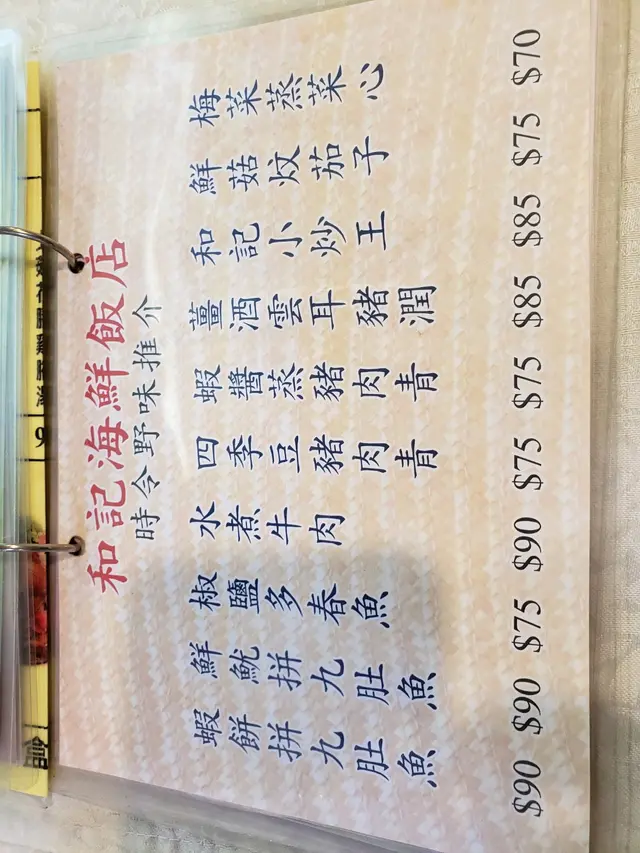 和記海鮮飯店
時令野味推介
梅菜蒸菜心 $70
鮮菇炆茄子 $75
和記小炒王 $85
薑酒雲耳豬潤 $85
蝦醬蒸豬肉青 $75
四季豆豬肉青 $75
水煮牛肉 $90
椒鹽多春魚 $75
鮮魷拼九肚魚 $90
蝦餅拼九肚魚 $90